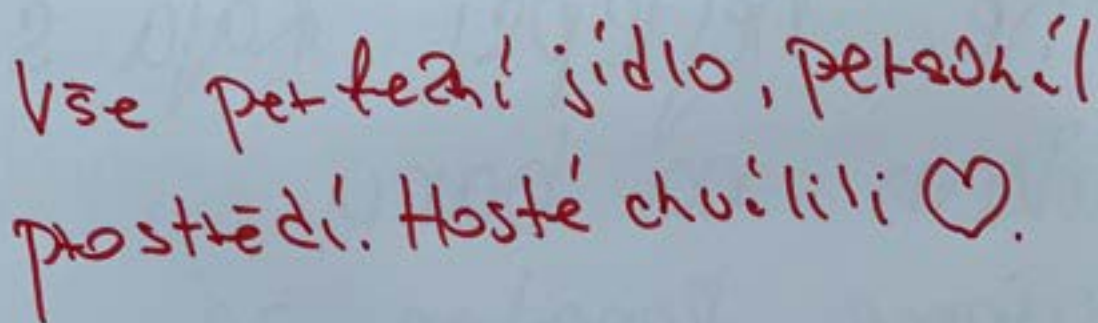 Vše perfektní jídlo, personál
prostředí. Hosté chválili ♡.